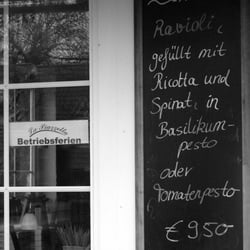 Ravioli,
gefüllt mit
Ricotta und
Spinat, in
Basilikum-
pesto
oder
Tomatenpesto
€ 950
Betriebsferien